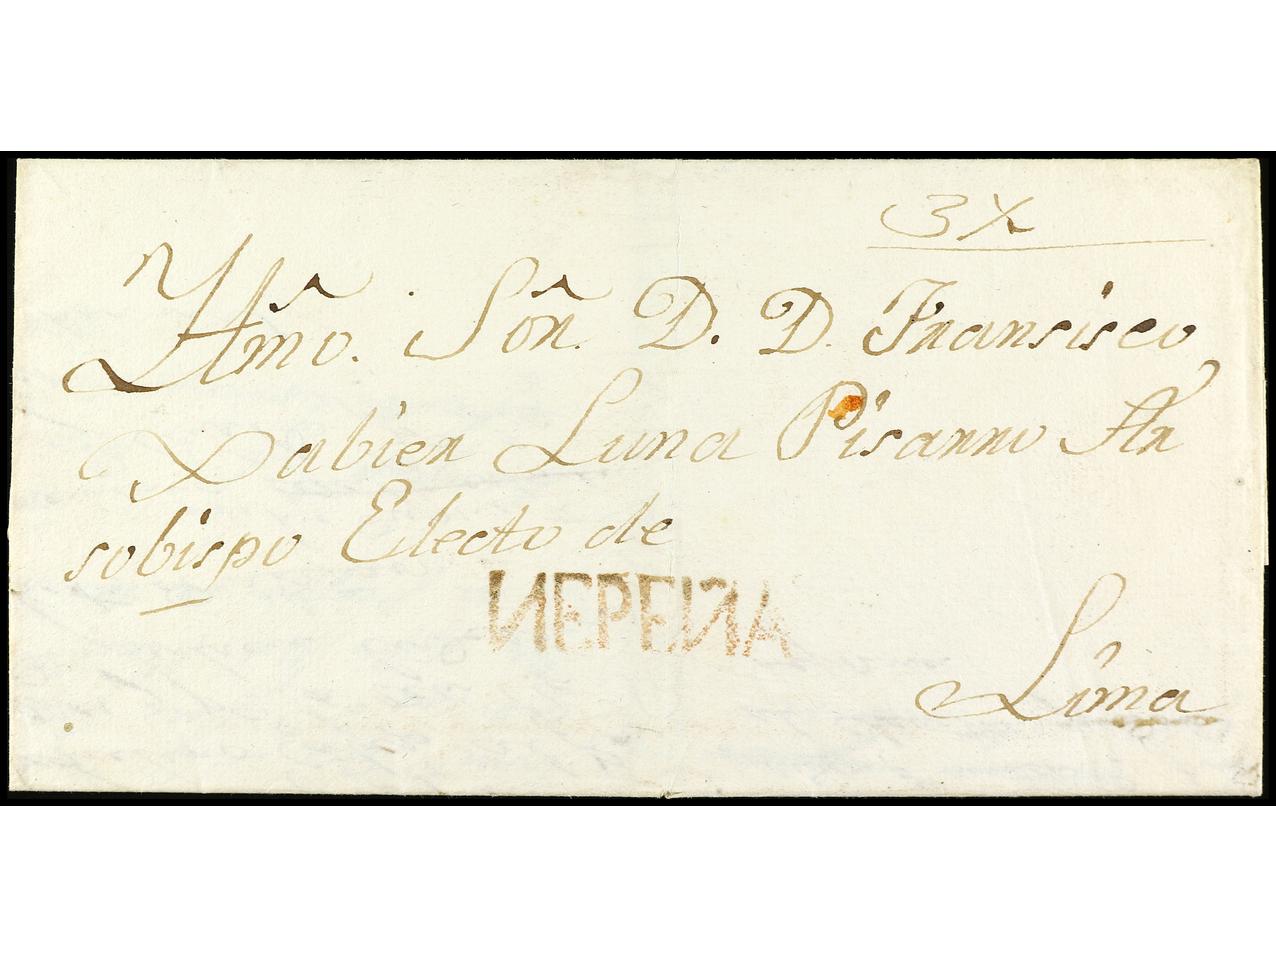 3 r
Yltm̃o. Sõr. D. D. Fransisco
Xabier Luna Pisarro Ar
sobispo Electo de
NEPEÑA
Lima